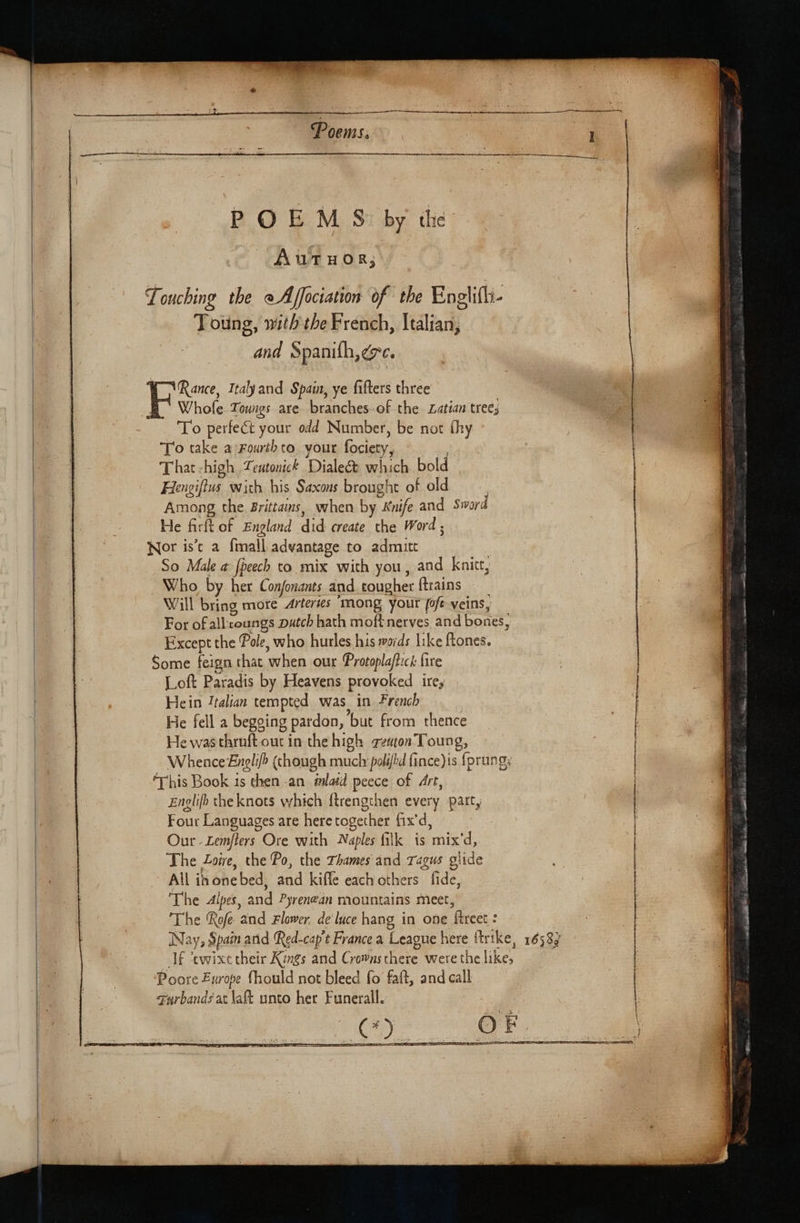 Poems. 1
POEMS by the
AUTHOR,
Touching the Aſſociation of the Engliſh-
Toung, with the French, Italian,
and Spaniſh, &c.
FRance, Italy and Spain, ye ſiſters three
Whoſe Toungs are branches of the Latian tree,
To perfect your odd Number, be not ſhy
To take a Fourth to your ſociety,
That high Teutonick Dialect which bold
Hengiſtus with his Saxons brought of old
Among the Brittains, when by Knife and Sword
He firſt of England did create the Word;
Nor is't a ſmall advantage to admitt
So Male a ſpeech to mix with you, and knitt,
Who by her Conſonants and tougher ſtrains
Will bring more Arteries 'mong your ſoft veins,
For of all toungs Dutch hath moſt nerves and bones,
Except the Pole, who hurles his words like ſtones.
Some feign that when our Protoplaſtick ſire
Loſt Paradis by Heavens provoked ire,
He in Italian tempted was, in French
He fell a begging pardon, but from thence
He was thruſt out in the high Teuton Toung,
Whence Engliſh (though much poliſhd ſince) is ſprung;
This Book is then an inlaid peece of Art,
Engliſh the knots which ſtrengthen every part,
Four Languages are here together fix'd,
Our Lemſters Ore with Naples ſilk is mix'd,
The Loire, the Po, the Thames and Tagus glide
All in one bed, and kiſſe each others ſide,
The Alpes, and Pyrenæan mountains meet,
The Roſe and Flower de luce hang in one ſtreet:
Nay, Spain and Red-cap't France a League here ſtrike, 1658;
If 'twixt their Kings and Crowns there were the like,
Poore Europe ſhould not bleed ſo faſt, and call
Turbands at laſt unto her Funerall.
(*) OF